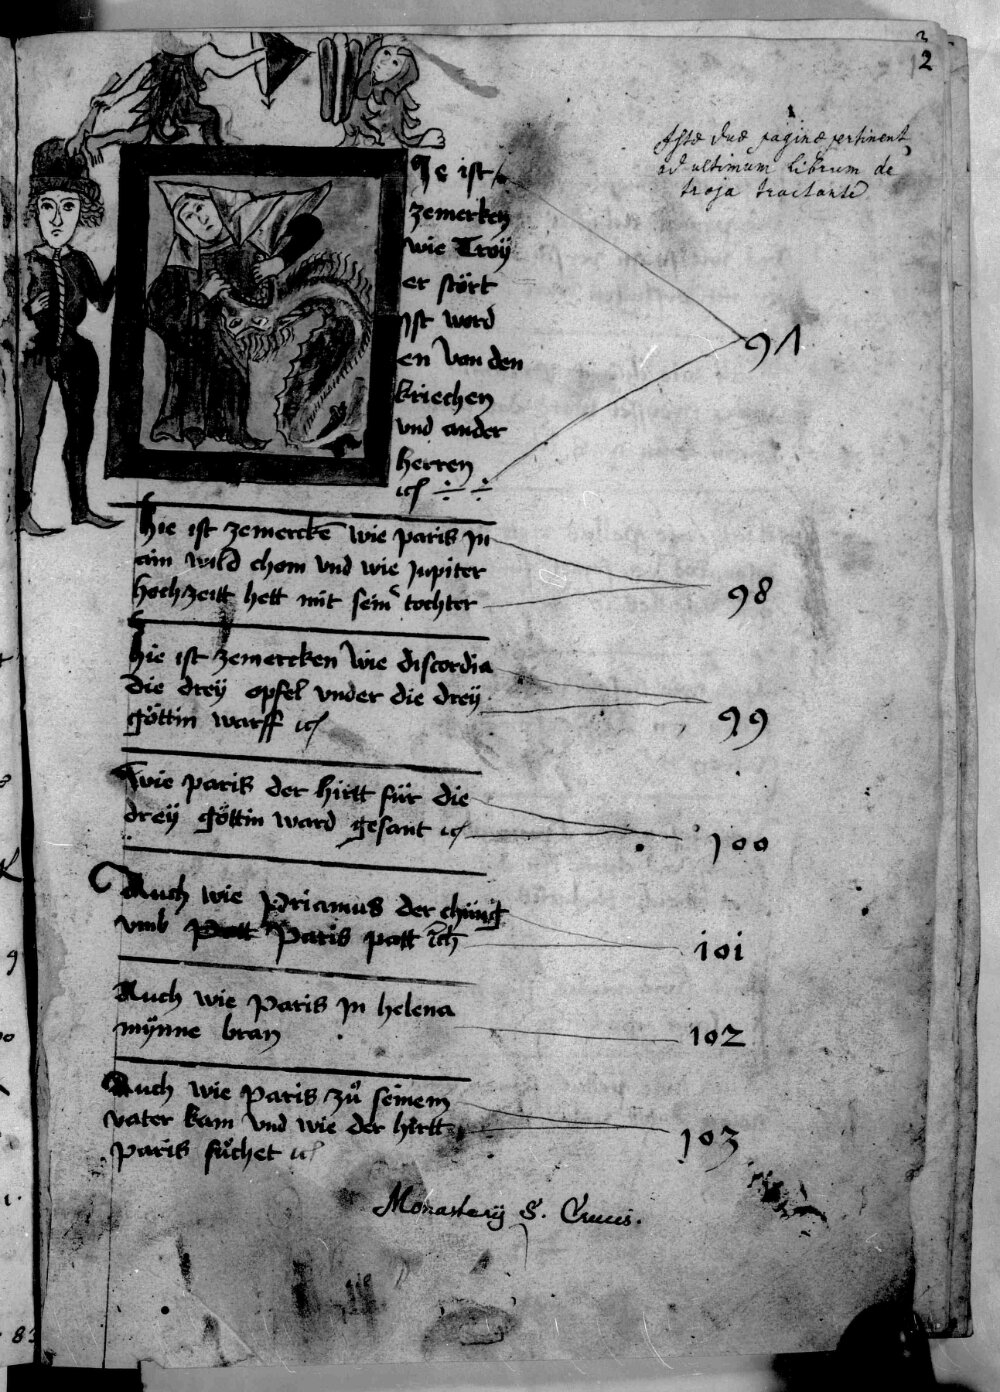 3
2
Istæ duæ paginæ pertinent
ad ultimum librum de
troja tractante
He ist
zemerken
wie Troÿ
er stört
ist word
en von den
kriechen
vnd ander
herren
97
hie ist zemerckē wie paris jn
ain wild chom vnd wie jupiter
hochzeitt hett mit sein tochter
98
hie ist zemercken wie discordia
die dreÿ opfel vnder die dreÿ
göttin warff
99
wie paris der hirtt für die
dreÿ göttin ward gesant
100
Auch wie priamus der chünig
vmb Paris patt
101
Auch wie Paris jn helena
mÿnne bran
102
Auch wie Paris zů seinem
vater kam vnd wie der hirtt
paris sůchet
103
Monasterij S. Crucis.